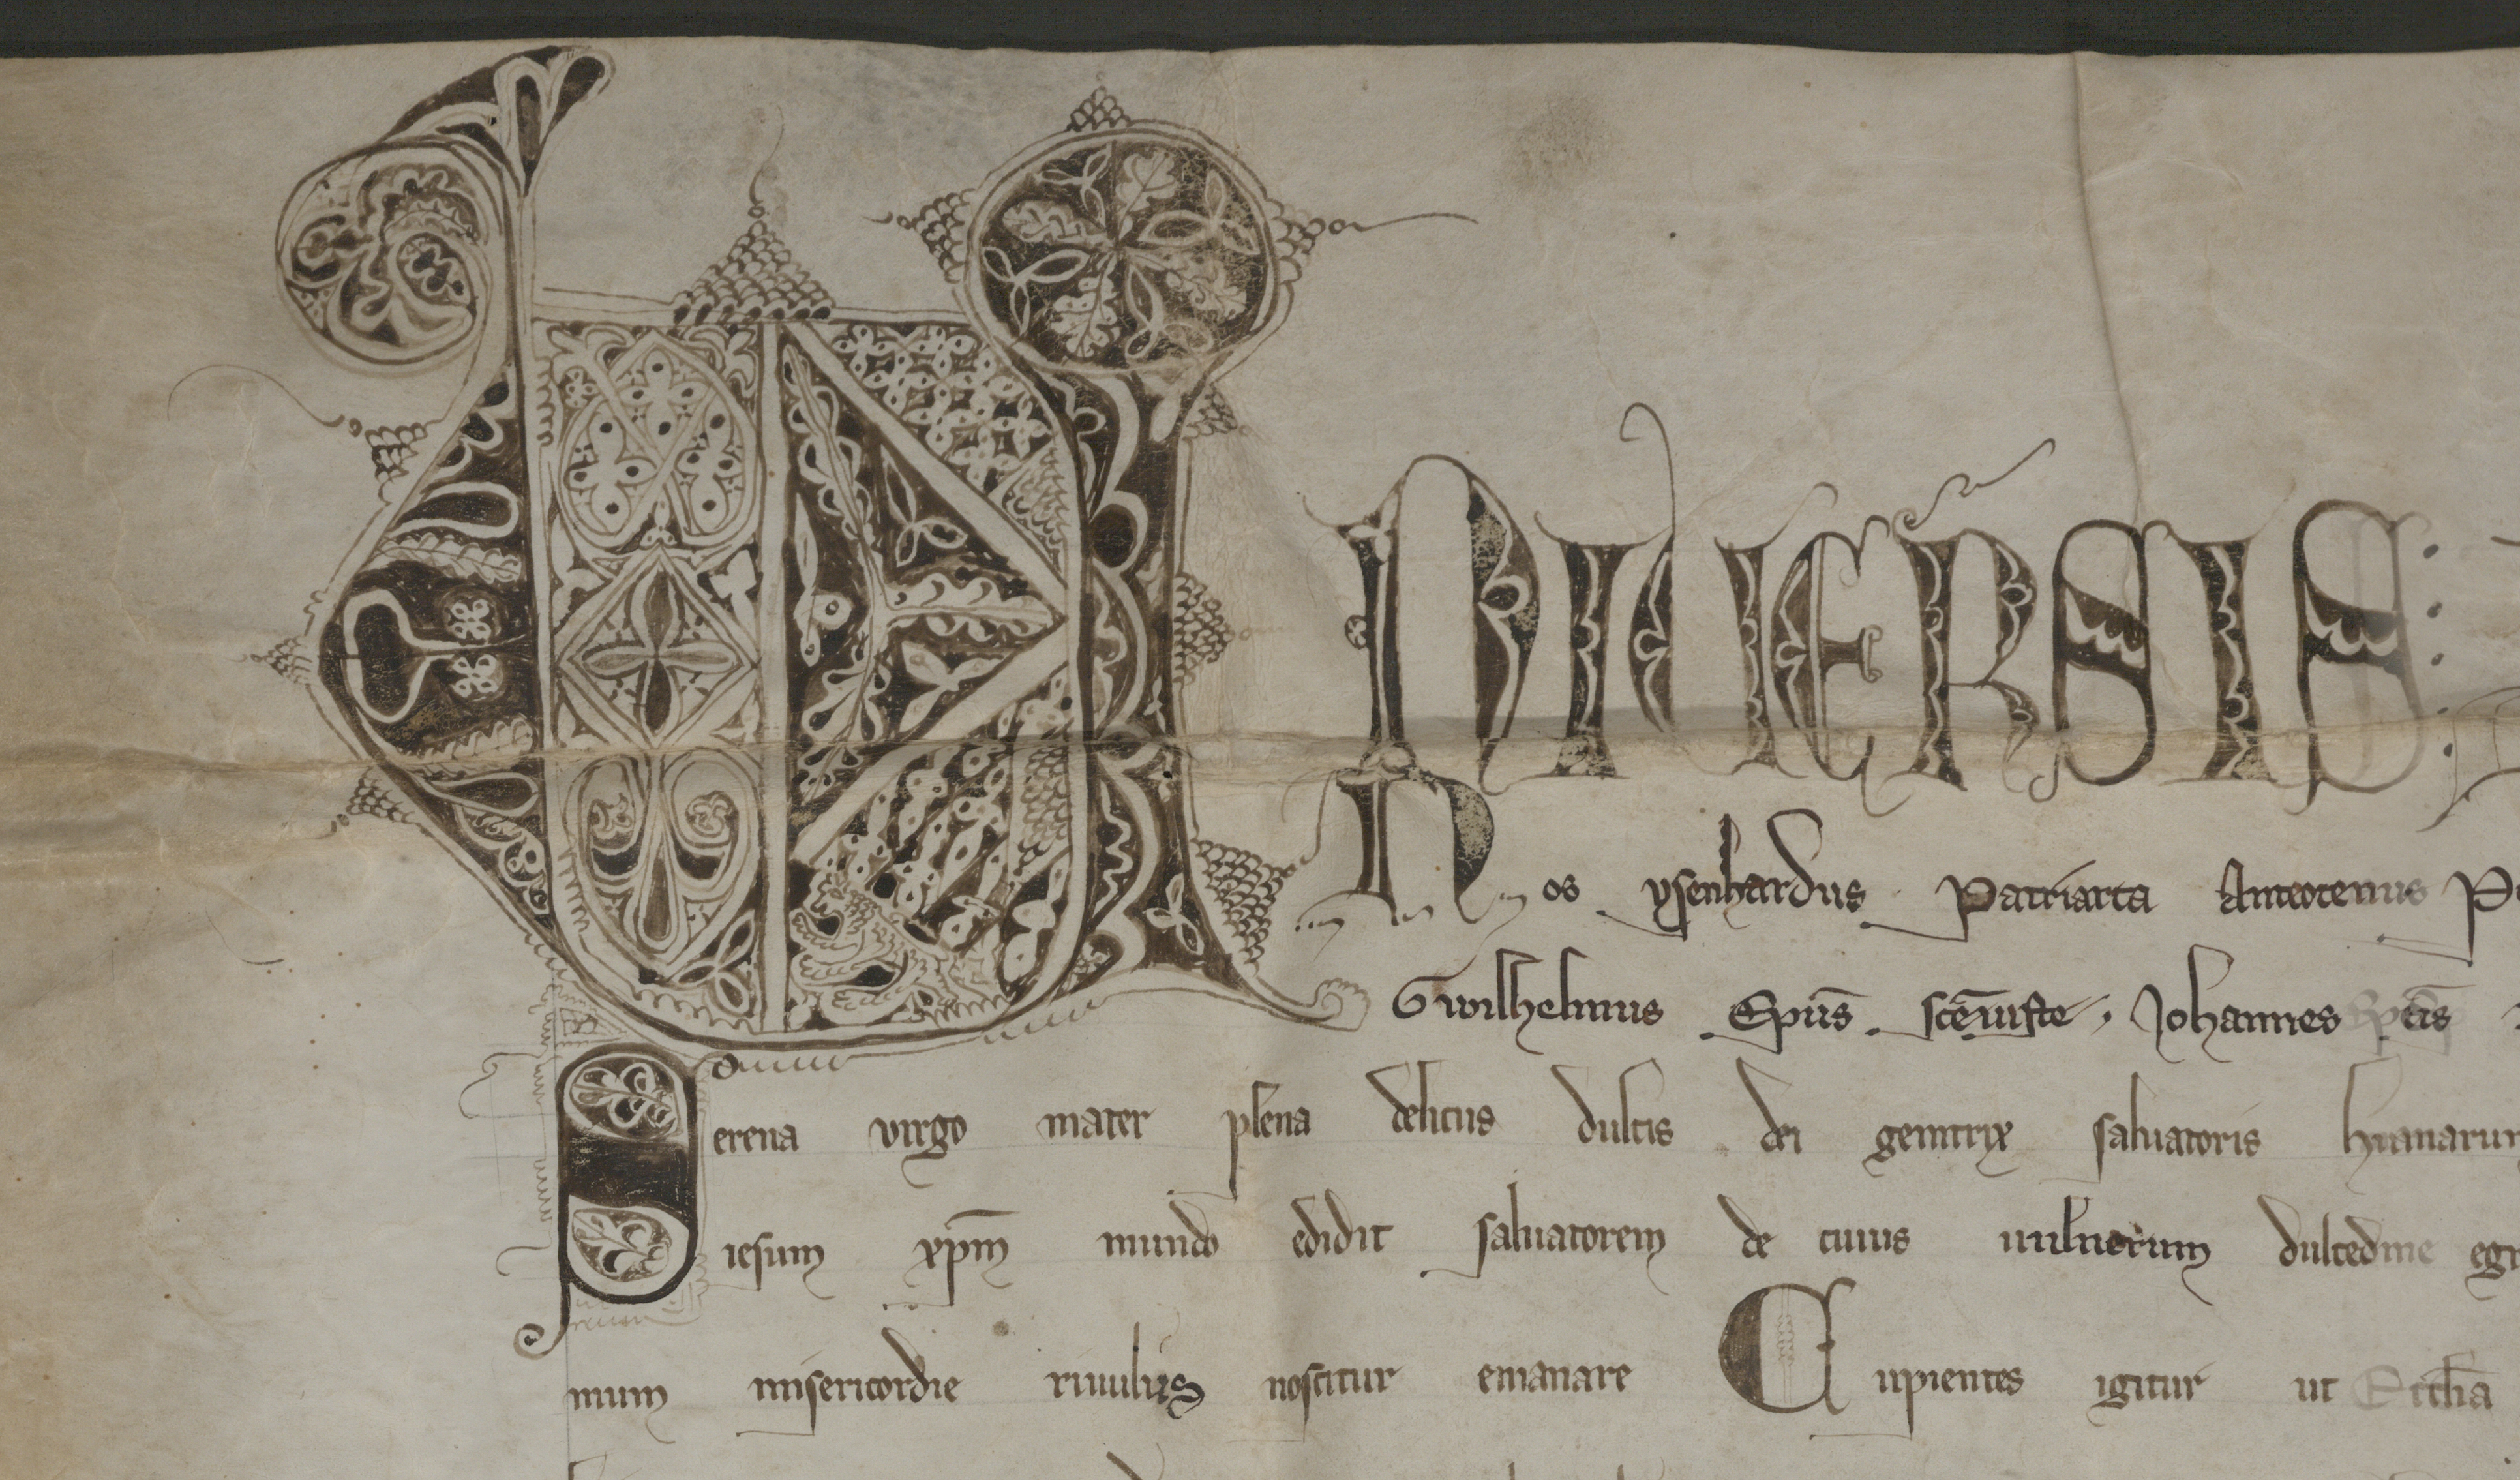 UNIUERSIS
Nos ysenhardus Patriarca Anteocenus
Gwilhelmus Ep̄us Johannes Ep̄us
Serena virgo mater plena deliciis dulcis dei genitrix saluatoris
iesum xp̄m mundo edidit saluatorem de cuius uulnerum dulcedine
mum misericordie riuulus noscitur emanare Cupientes igitur ut Eccl̄ia